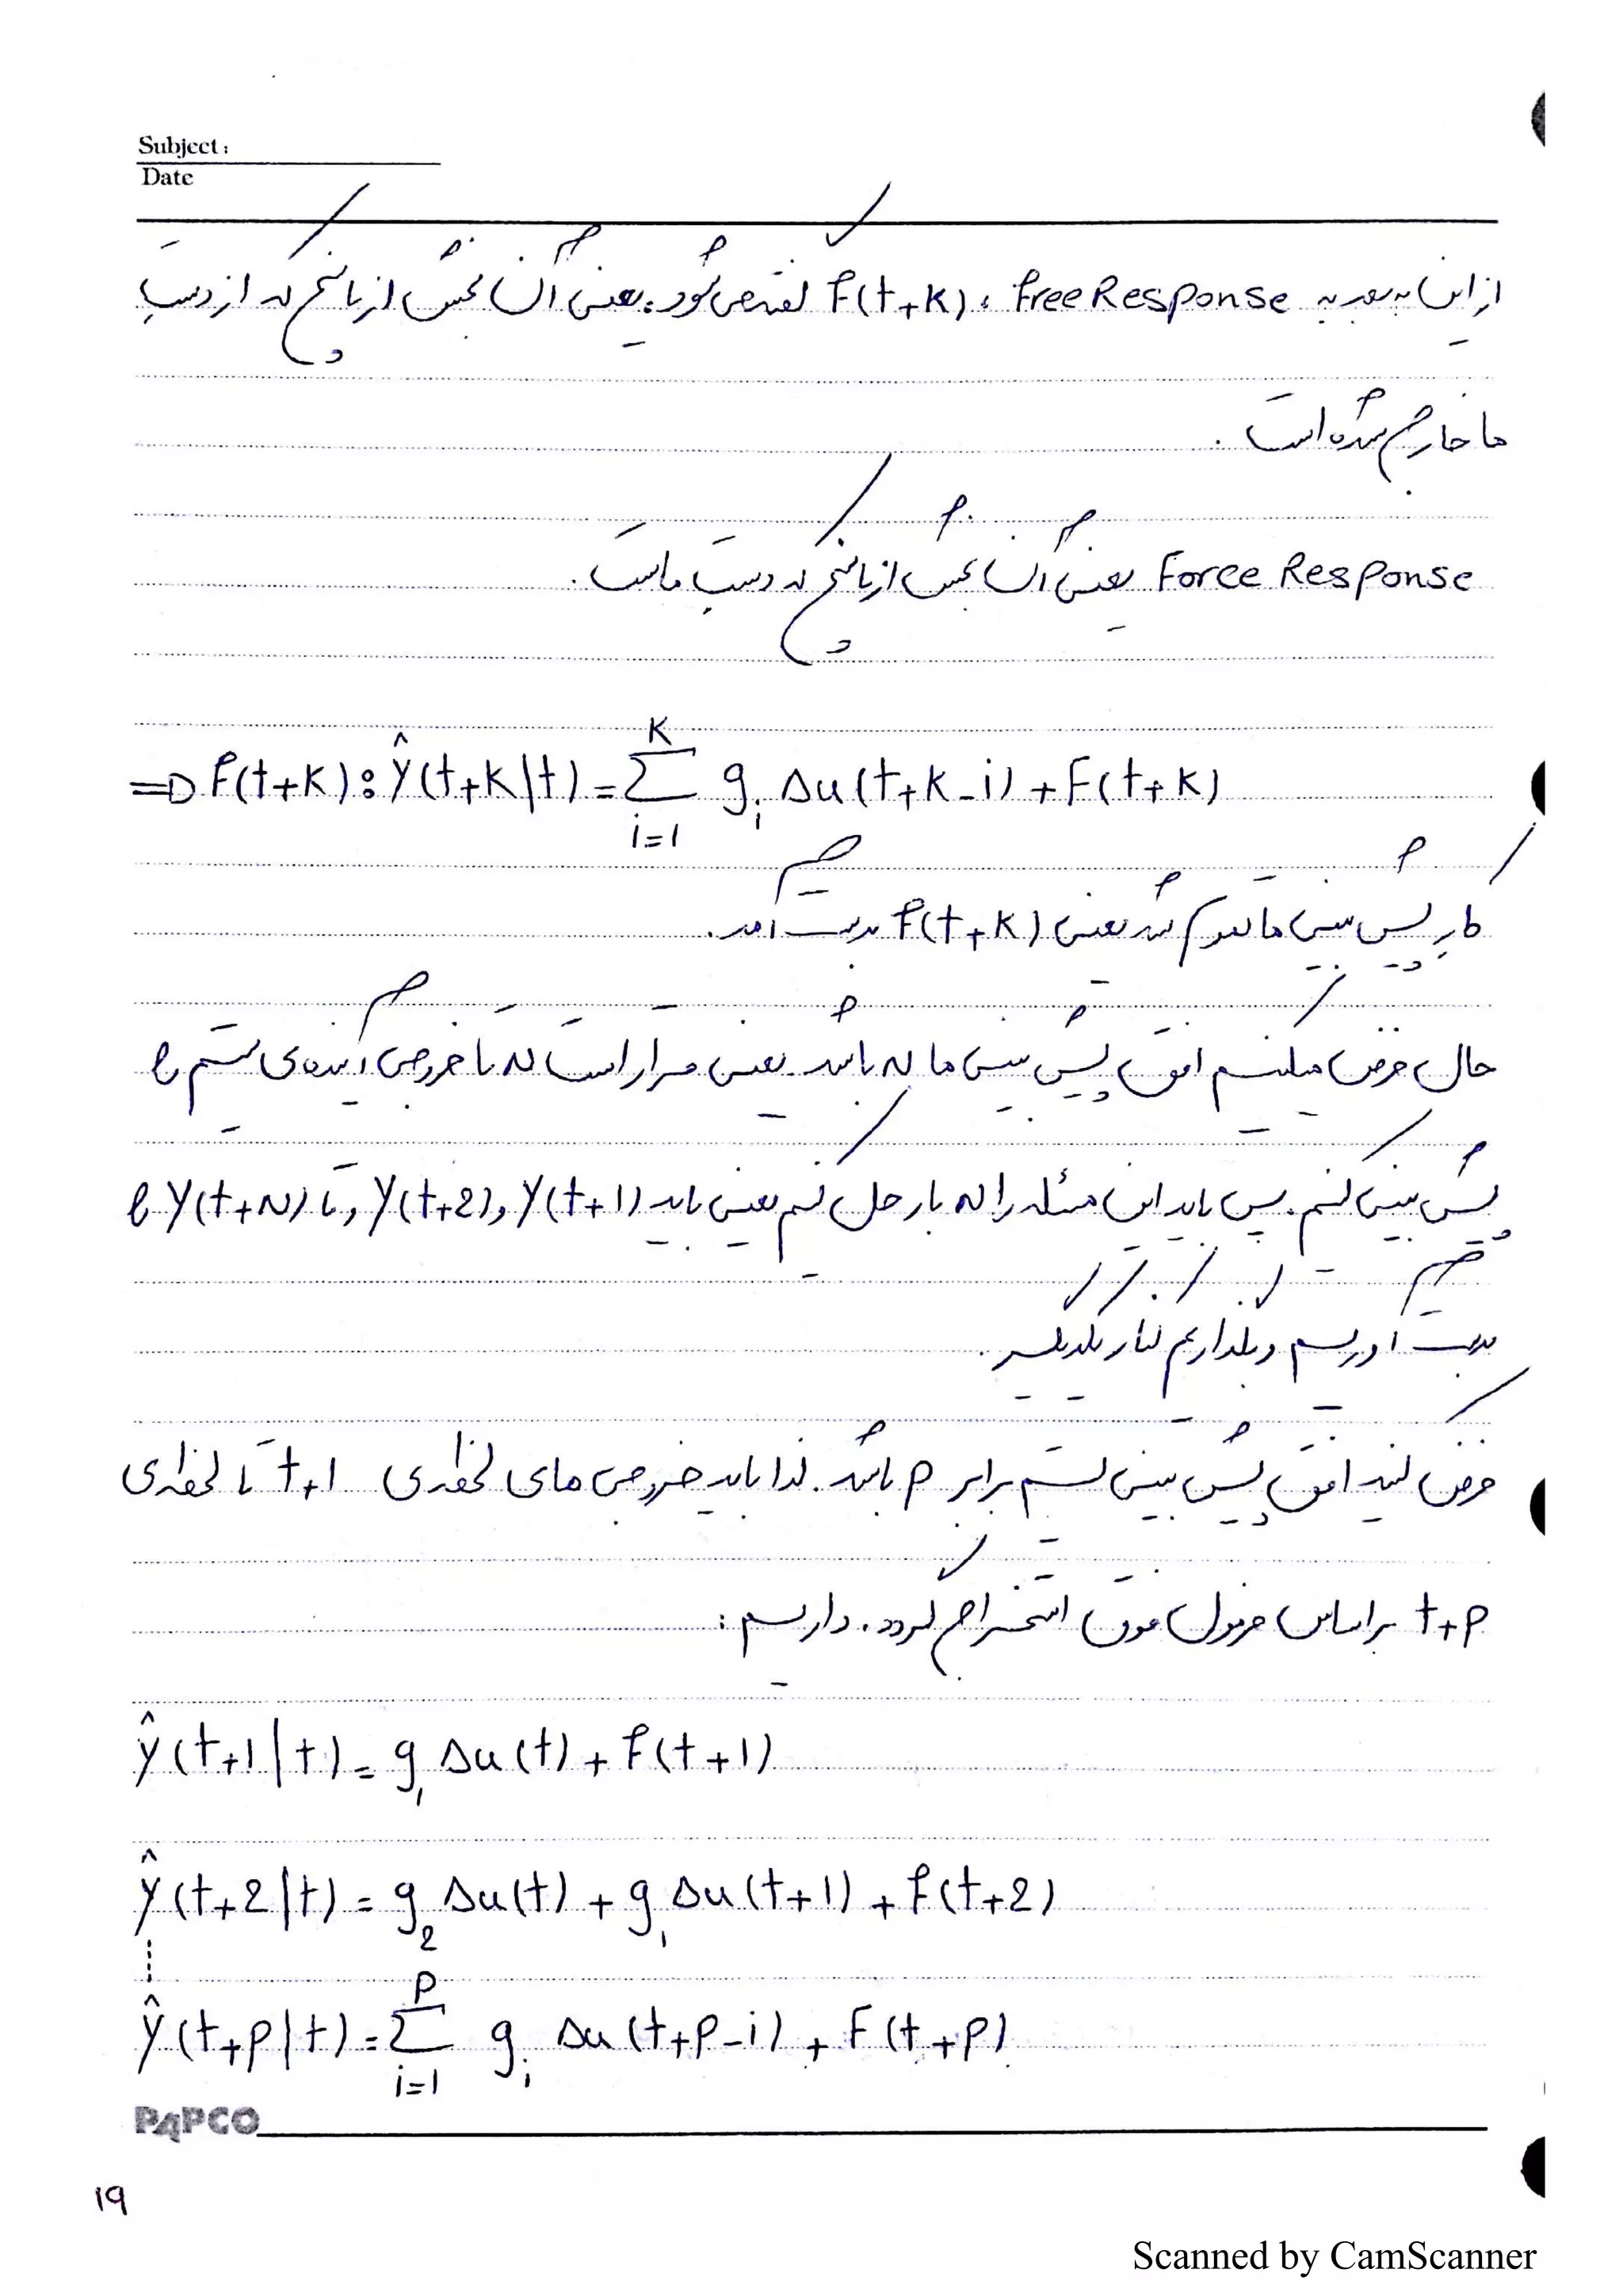 Subject:
Date
از این به بعد به Free Response ، f(t+k) گفته می‌شود؛ یعنی آن بخش از پاسخ که از دست
ما خارج شده است.
Force Response یعنی آن بخش از پاسخ که دست ماست.
=> f(t+k): ŷ(t+k|t) = Σ_{i=1}^{k} g_i Δu(t+k-i) + F(t+k)
کار پیش بینی ما تموم شد یعنی f(t+k) بدست آمد.
حال فرض میکنیم افق پیش بینی ما باشد. یعنی قرار است که تا خروجی آینده‌ی سیستم را
پیش بینی کنیم. پس باید این مسئله را بار حل کنیم یعنی باید y(t+1) و y(t+2) و تا y(t+N) را
بدست آوریم و بگذاریم کنار یکدیگر.
فرض کنید افق پیش بینی سیستم برابر p باشد. لذا باید خروجی های لحظه‌ی t+1 تا لحظه‌ی
t+p براساس فرمول فوق استخراج گردد. داریم:
ŷ(t+1|t) = g_1 Δu(t) + f(t+1)
ŷ(t+2|t) = g_2 Δu(t) + g_1 Δu(t+1) + f(t+2)
ŷ(t+p|t) = Σ_{i=1}^{p} g_i Δu(t+p-i) + F(t+p)
PAPCO
۱۹
Scanned by CamScanner